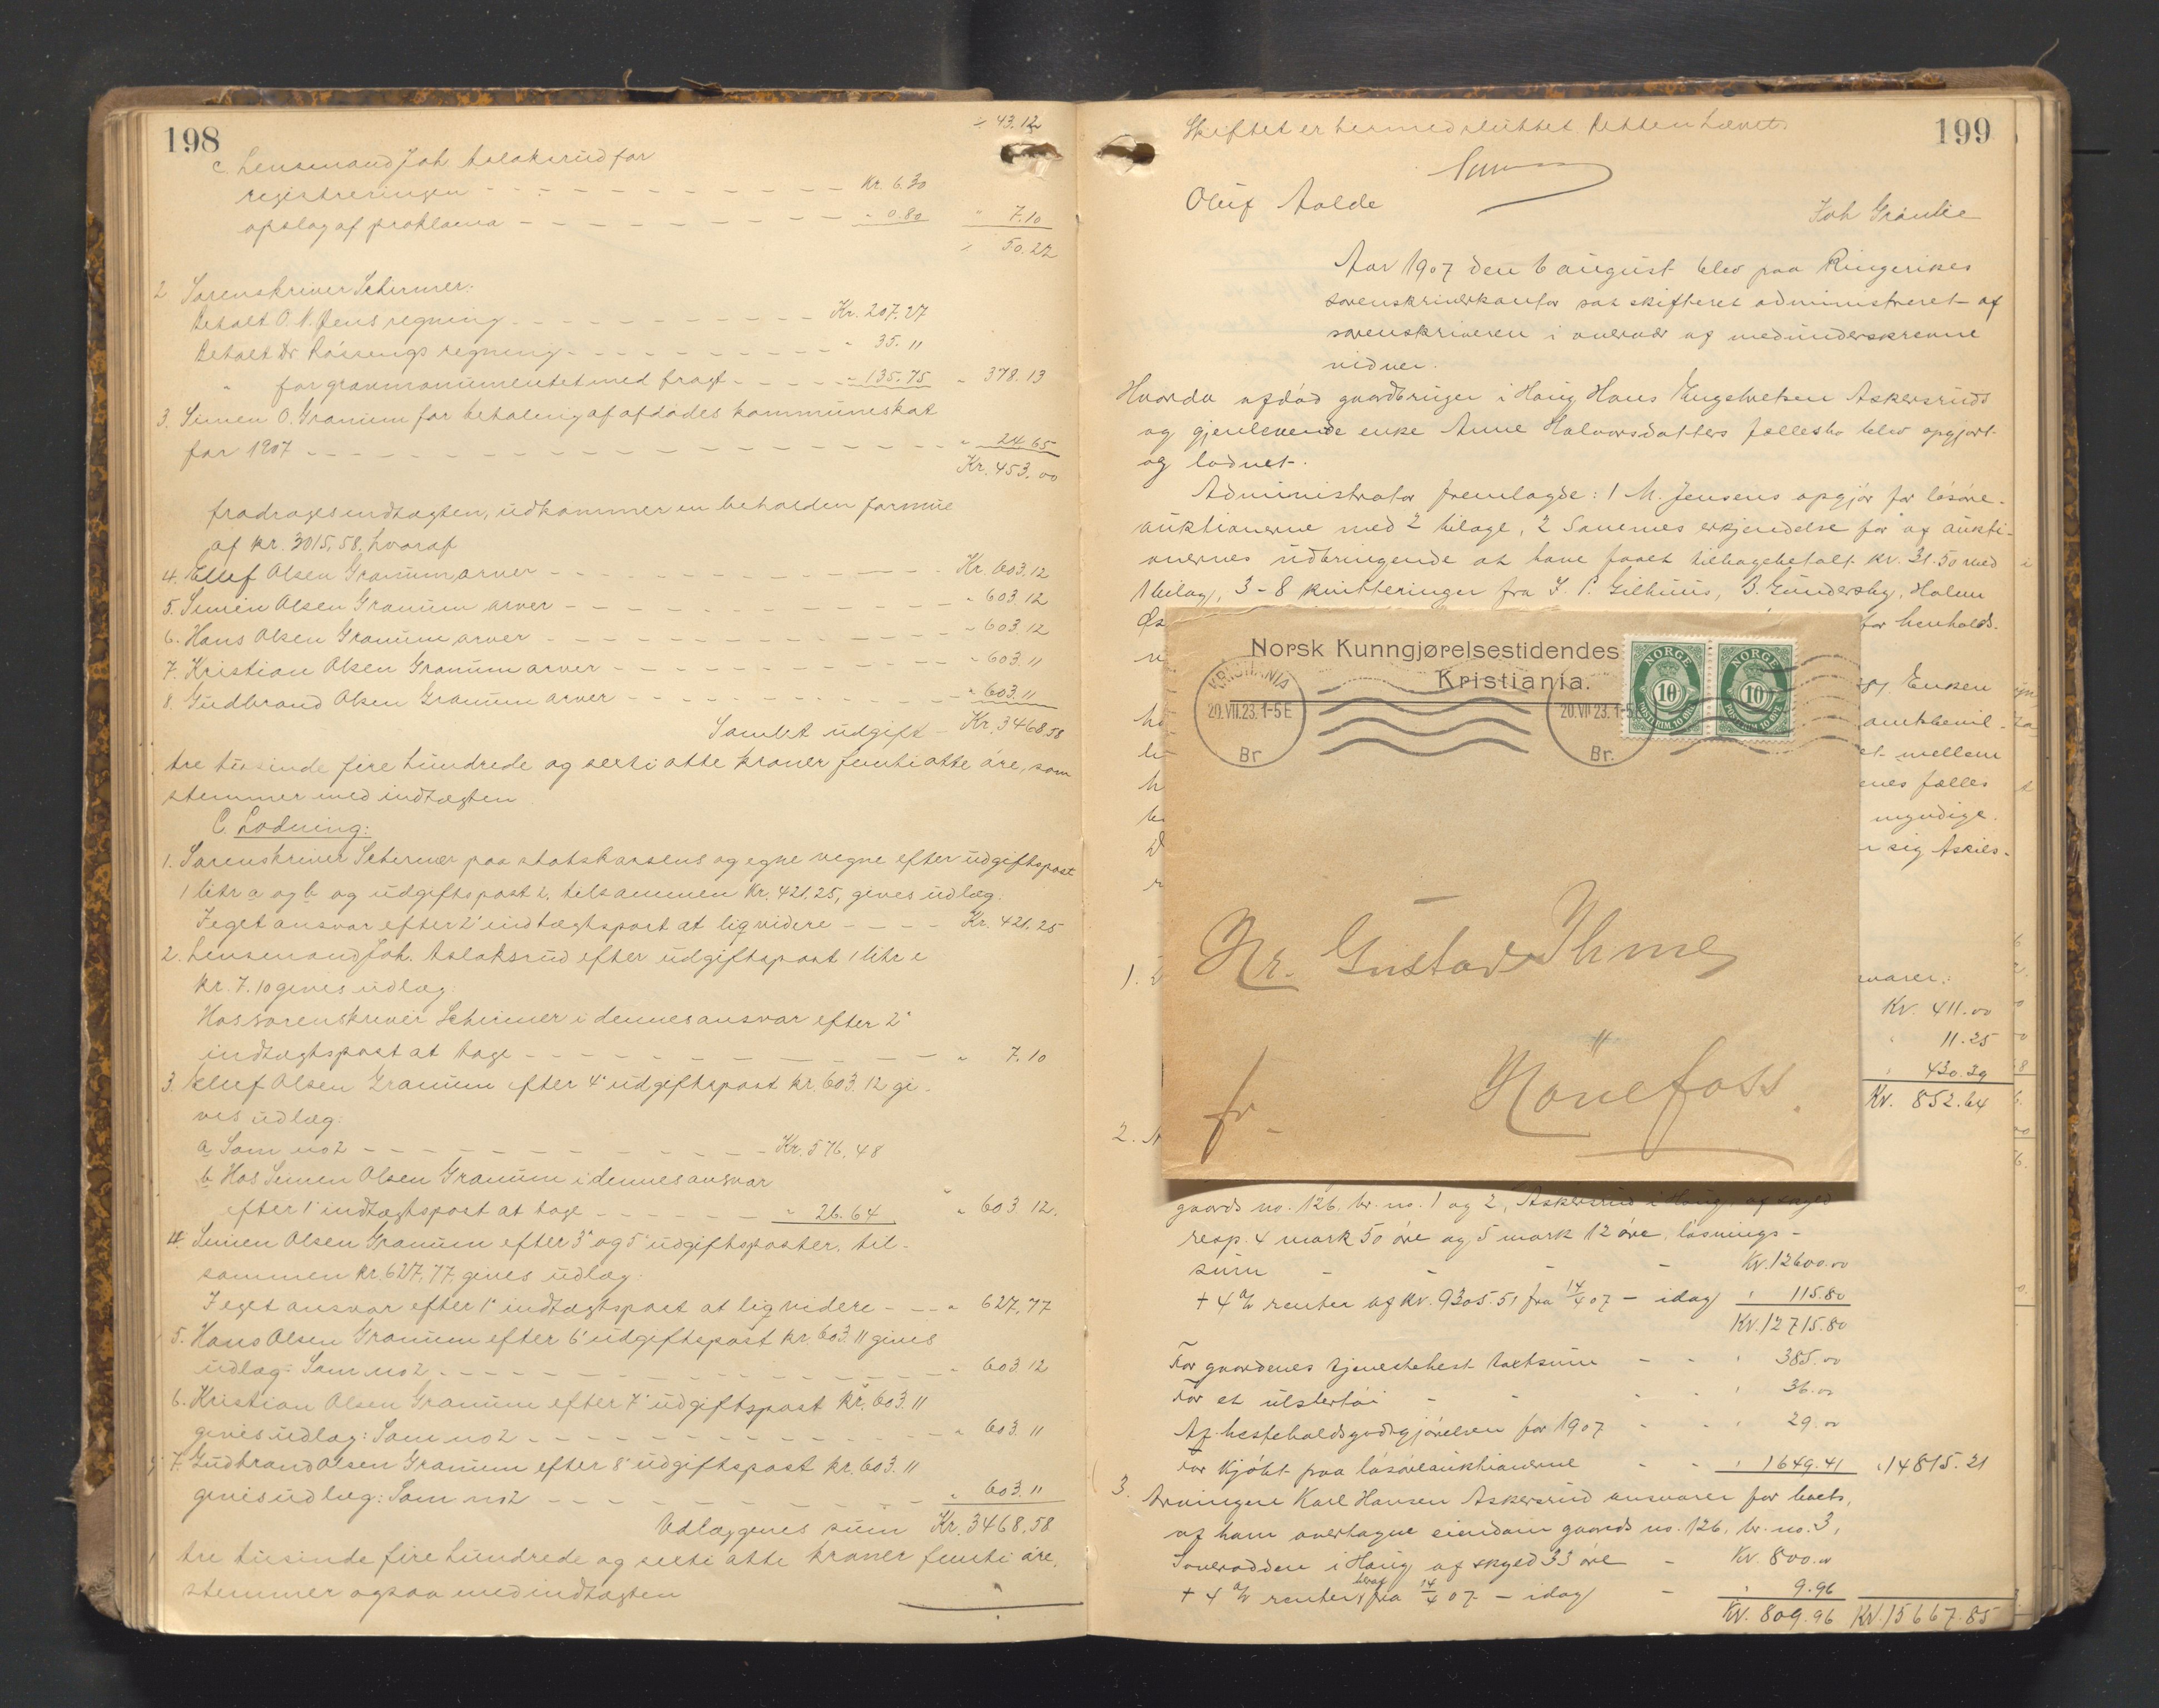 198
÷ 43.12
c. Lensmand Joh Aslaksrud for
registreringen Kr. 6.30
opslag af proklama " 0.80 " 7.10
÷ 50.22
2 Sorenskriver Schirmer:
Betalt O. N. Jens regning Kr. 207.27
Betalt Dr Røssengs regning " 35.11
" for gravmonumentet med fragt " 135.75 " 378.13
3. Simen O. Granum for betaling af afdødes kommuneskat
for 1907 " 24.65
Kr. 453.00
fradrages indtægten, udkommer en beholden formue
af kr. 3015,58, hvoraf
4. Elluf Olsen Granum arver Kr. 603.12
5. Simen Olsen Granum arver " 603.12
6. Hans Olsen Granum arver " 603.12
7. Kristian Olsen Granum arver " 603.11
8. Gudbrand Olsen Granum arver " 603.11
Samlet udgift Kr. 3468.58
tre tusinde fire hundrede og sexti otte kroner femti otte øre, som
stemmer med indtægten
C. Lodning:
1. Sorenskriver Schirmer paa statskassens og egne vegne efter udgiftspost
1 litr a og b og udgiftspost 2, tilsammen Kr. 421,25, gives udlæg:
I eget ansvar efter 2' indtægtspost at liqvidere Kr. 421.25
2. Lensmand Joh. Aslaksrud efter udgiftspost 1 litr c
kr. 7.10 gives udlæg:
Hos sorenskriver Schirmer i dennes ansvar efter 2'
indtægtspost at tage " 7.10
3. Elluf Olsen Granum efter 4' udgiftspost kr. 603.12 gi-
ves udlæg:
a. Som no 2 Kr. 576,48
b Hos Simen Olsen Granum i dennes ansvar
efter 1' indtægtspost at tage " 26.64 " 603.12.
4. Simen Olsen Granum efter 3' og 5' udgiftsposter, til-
sammen kr. 627,77, gives udlæg:
I eget ansvar efter 1' indtægtspost at liqvidere " 627,77
5. Hans Olsen Granum efter 6' udgiftspost kr. 603.11 gives
udlæg: Som no 2 " 603.12
6. Kristian Olsen Granum efter 7' udgiftspost kr. 603.11
gives udlæg: Som no 2 " 603.11
7. Gudbrand Olsen Granum efter 8' udgiftspost kr. 603.11
gives udlæg: Som no 2 " 603.11
Udlæggenes sum Kr. 3468,58
tre tusinde fire hundrede og sexti otte kroner femti øre,
stemmer ogsaa med indtægten
199
Skiftet er hermed sluttet. Retten hævet.
Oluf Aalde
Joh Granlie
Aar 1907 den 6 august blev paa Ringerikes
sorenskriverkontor sat skifteret administreret af
sorenskriveren i overvær af medunderskrevne
vidner.
Hvorda afdød gaardbruger i Haug Hans Engebretsen Askersruds
og gjenlevende enke Anne Halvorsdatters fællesbo blev opgjort
og lodnet.
Administrator fremlagde: 1 M. Jensens opgjør for løsøre-
auktionerne med 2 bilage, 2 Sammes erkjendelse for af aukti-
onernes udbringende at have faaet tilbagebetalt kr. 31.50 med
1 bilag, 3-8 kvitteringer fra J. P. Gilhuus, B. Gundersby, Holm
for henholds-
Enken
amtbevil-
et mellem
enes fælles
myndige.
r sig Askers-
Norsk Kunngjørelsestidendes
Kristiania.
KRISTIANIA
20.VII.23.1-5E
Br
20.VII.23.1-5
Br.
NORGE
10
POSTFRIM. 10 ØRE
NORGE
10
POSTFRIM. 10 ØRE
Hr. Gustav Ihme
fr
Hönefoss.
1.
svarer:
Kr. 411.00
" 11.25
" 430.39
Kr. 852.64
2.
gaards no. 126, br. no. 1 og 2, Askersrud i Haug, af skyld
resp. 4 mark 50 øre og 5 mark 12 øre, løsnings-
sum Kr. 12600.00
+ 4 % renter af kr. 9305.51 fra 14/4 07 - idag " 115.80
Kr. 12715.80
For gaardenes tjenestehest taxtsum " 385.00
For et ulstertøi " 36.00
Af hesteholdsgodtgjørelsen for 1907 " 29.00
For kjøbt paa løsøreauktionerne " 1649.41 " 14815.21
3. Arvingen Karl Hansen Askersrud ansvarer for boets,
af ham overtagne eiendom gaards no. 126, br. no. 3,
i Haug af skyld 33 øre Kr. 800.00
+ 4 % renter heraf fra 14/4 07 - idag " 9.96
Kr. 809.96 Kr. 15667.85